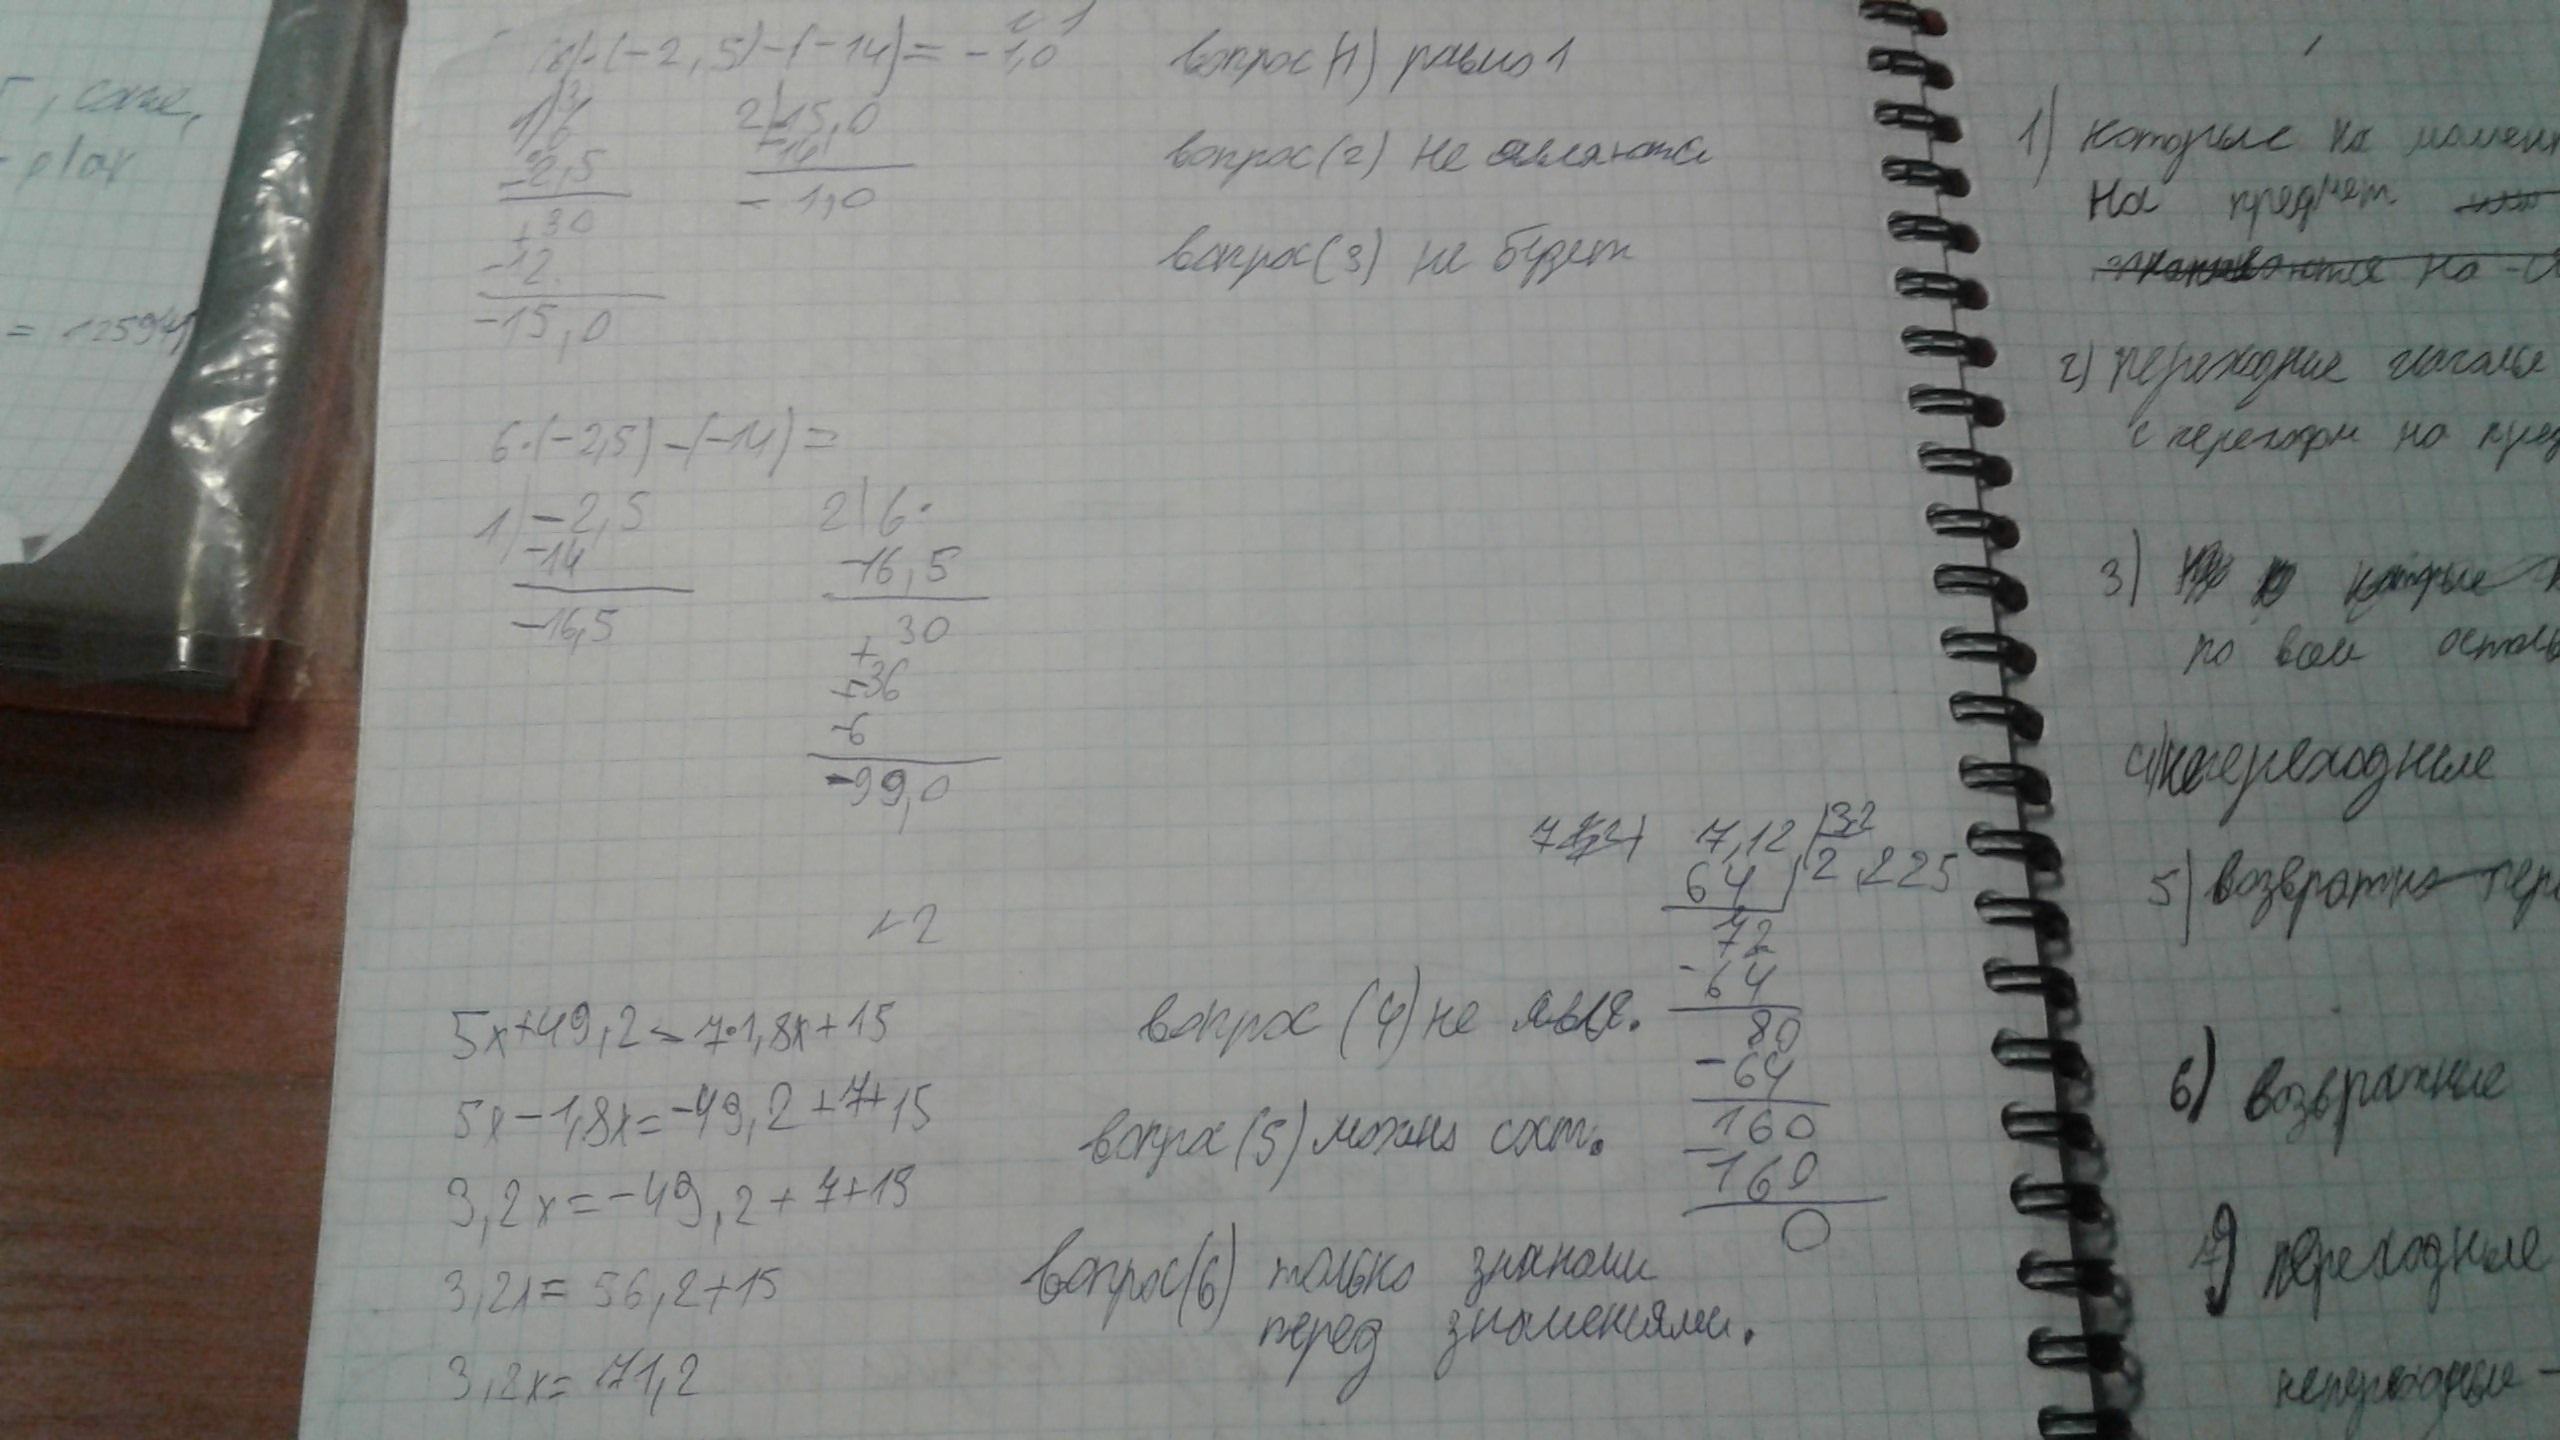 , come,
play
= 1259
·(-2,5)-(-14)= -1,0
1) 6
-2,5
+30
-12
-15,0
2) -15,0
-14
-1,0
вопрос(1) равно 1
вопрос(2) не являются
вопрос(3) не будет
6·(-2,5)-(-14)=
1) -2,5
-14
-16,5
2) 6·
-16,5
30
+
-36
-6
-99,0
12
5x+49,2=7·1,8x+15
5x-1,8x=-49,2+7+15
3,2x=-49,2+7+15
3,2x=56,2+15
3,2x=71,2
7,12 3,2
64 2,225
72
-64
80
-64
160
-160
0
вопрос (4) не явля.
вопрос(5) можно сост.
вопрос(6) только знаками
перед знаменями.
1) которые на
на предмет
на -ся
2) переходные глаголы
с переходом на
3) которые
по всем
4) непереходные
5) возвратно
6) возвратные
7) переходные
непереходные -